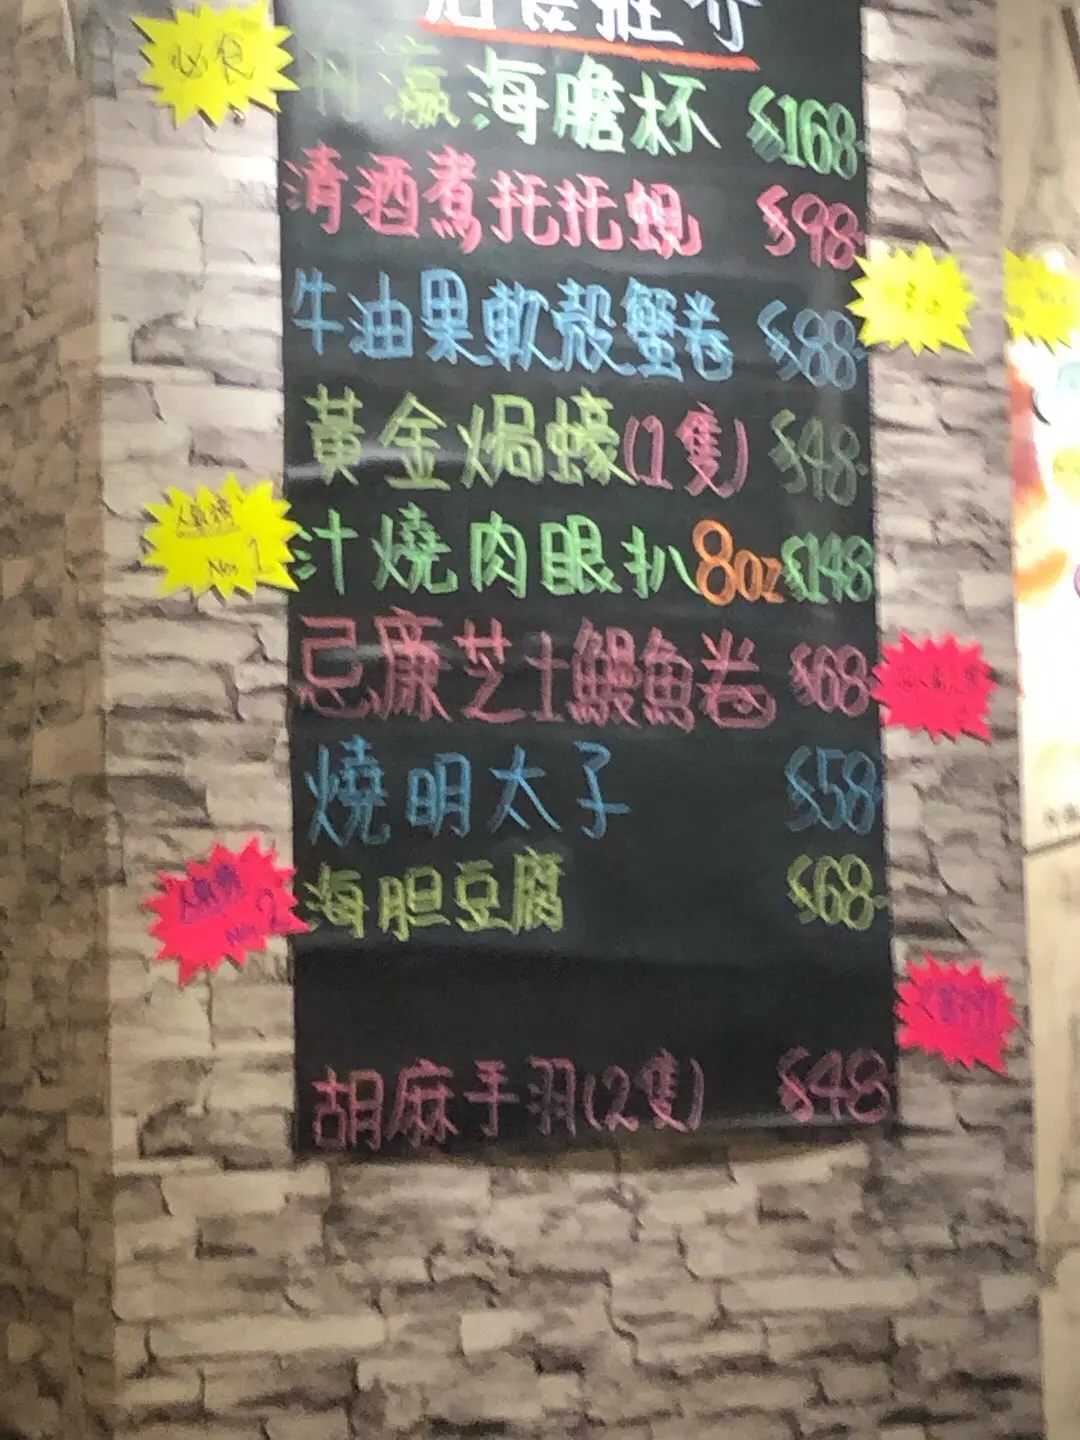 必食
海膽杯 $168-
清酒煮扥扥蜆 $98-
牛油果軟殼蟹卷 $88-
黃金焗蠔(1隻) $48-
人氣榜 No.1
汁燒肉眼扒 8oz $148
忌廉芝士鰻魚卷 $68-
燒明太子 $58-
人氣榜 No.2
海胆豆腐 $68-
胡麻手羽(2隻) $48-